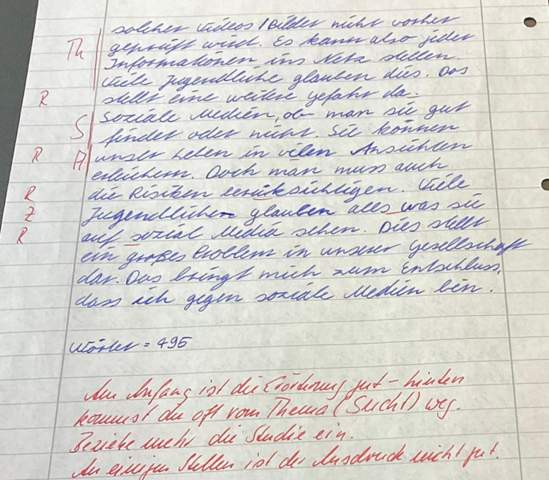 solcher Videos / Bilder nicht vorher
Th geprüft wird. Es kann also jeder
Informationen ins Netz stellen.
Viele Jugendliche glauben dies. Das
R stellt eine weitere Gefahr da.
Soziale Medien, ob man sie gut
S findet oder nicht. Sie können
R A unser Leben in vilen Ansichten
erleichern. Doch man muss auch
R die Risiken berücksichtigen. Viele
Z Jugendlichen glauben alles was sie
R auf sozial Media sehen. Dies stellt
ein großes Problem in unserer Gesellschaft
dar. Das bringt mich zum Entschluss,
dass ich gegen soziale Medien bin.
Wörter = 495
Am Anfang ist die Erörterung gut - hinten
kommst du oft vom Thema (Sucht) weg.
Beziehe mehr die Studie ein.
An einigen Stellen ist der Ausdruck nicht gut.